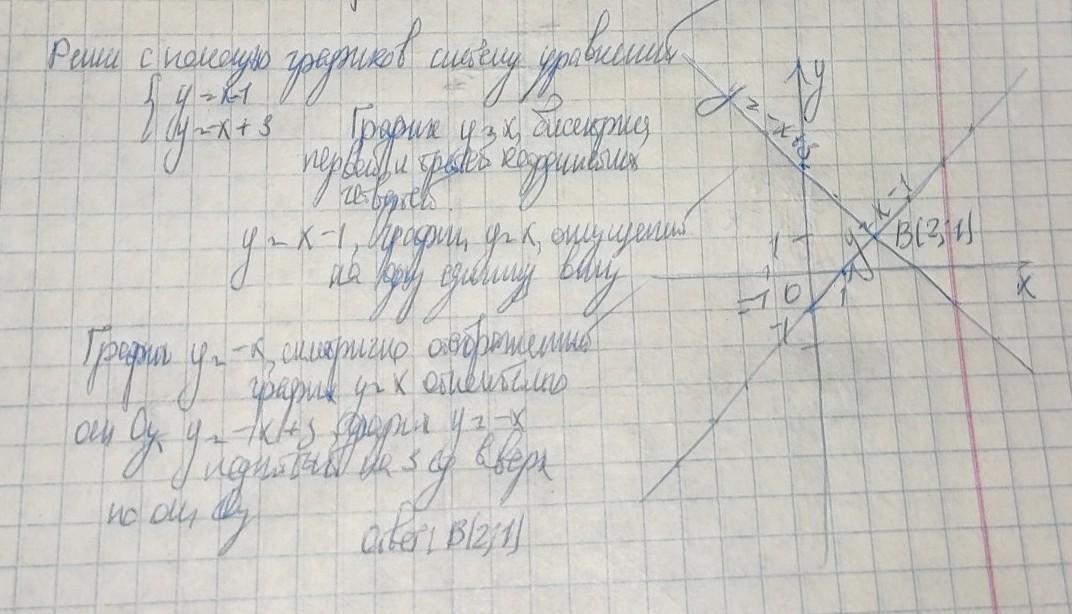 Реши с помощью графиков систему уравнений
{ y = x-1
y = -x + 3
График y = x, биссектриса
первой и третьей координатных
четвертей.
y = x - 1, график y = x, опущенный
на одну единицу вниз
График y = -x, симметрично отображенный
график y = x относительно
оси Oy. y = -x+3, график y = -x
поднятый на 3 ед вверх
по оси Oy
Ответ: B(2;1)
y
y = -x+3
y = x-1
B(2;1)
1
-1 0 1 x
-1